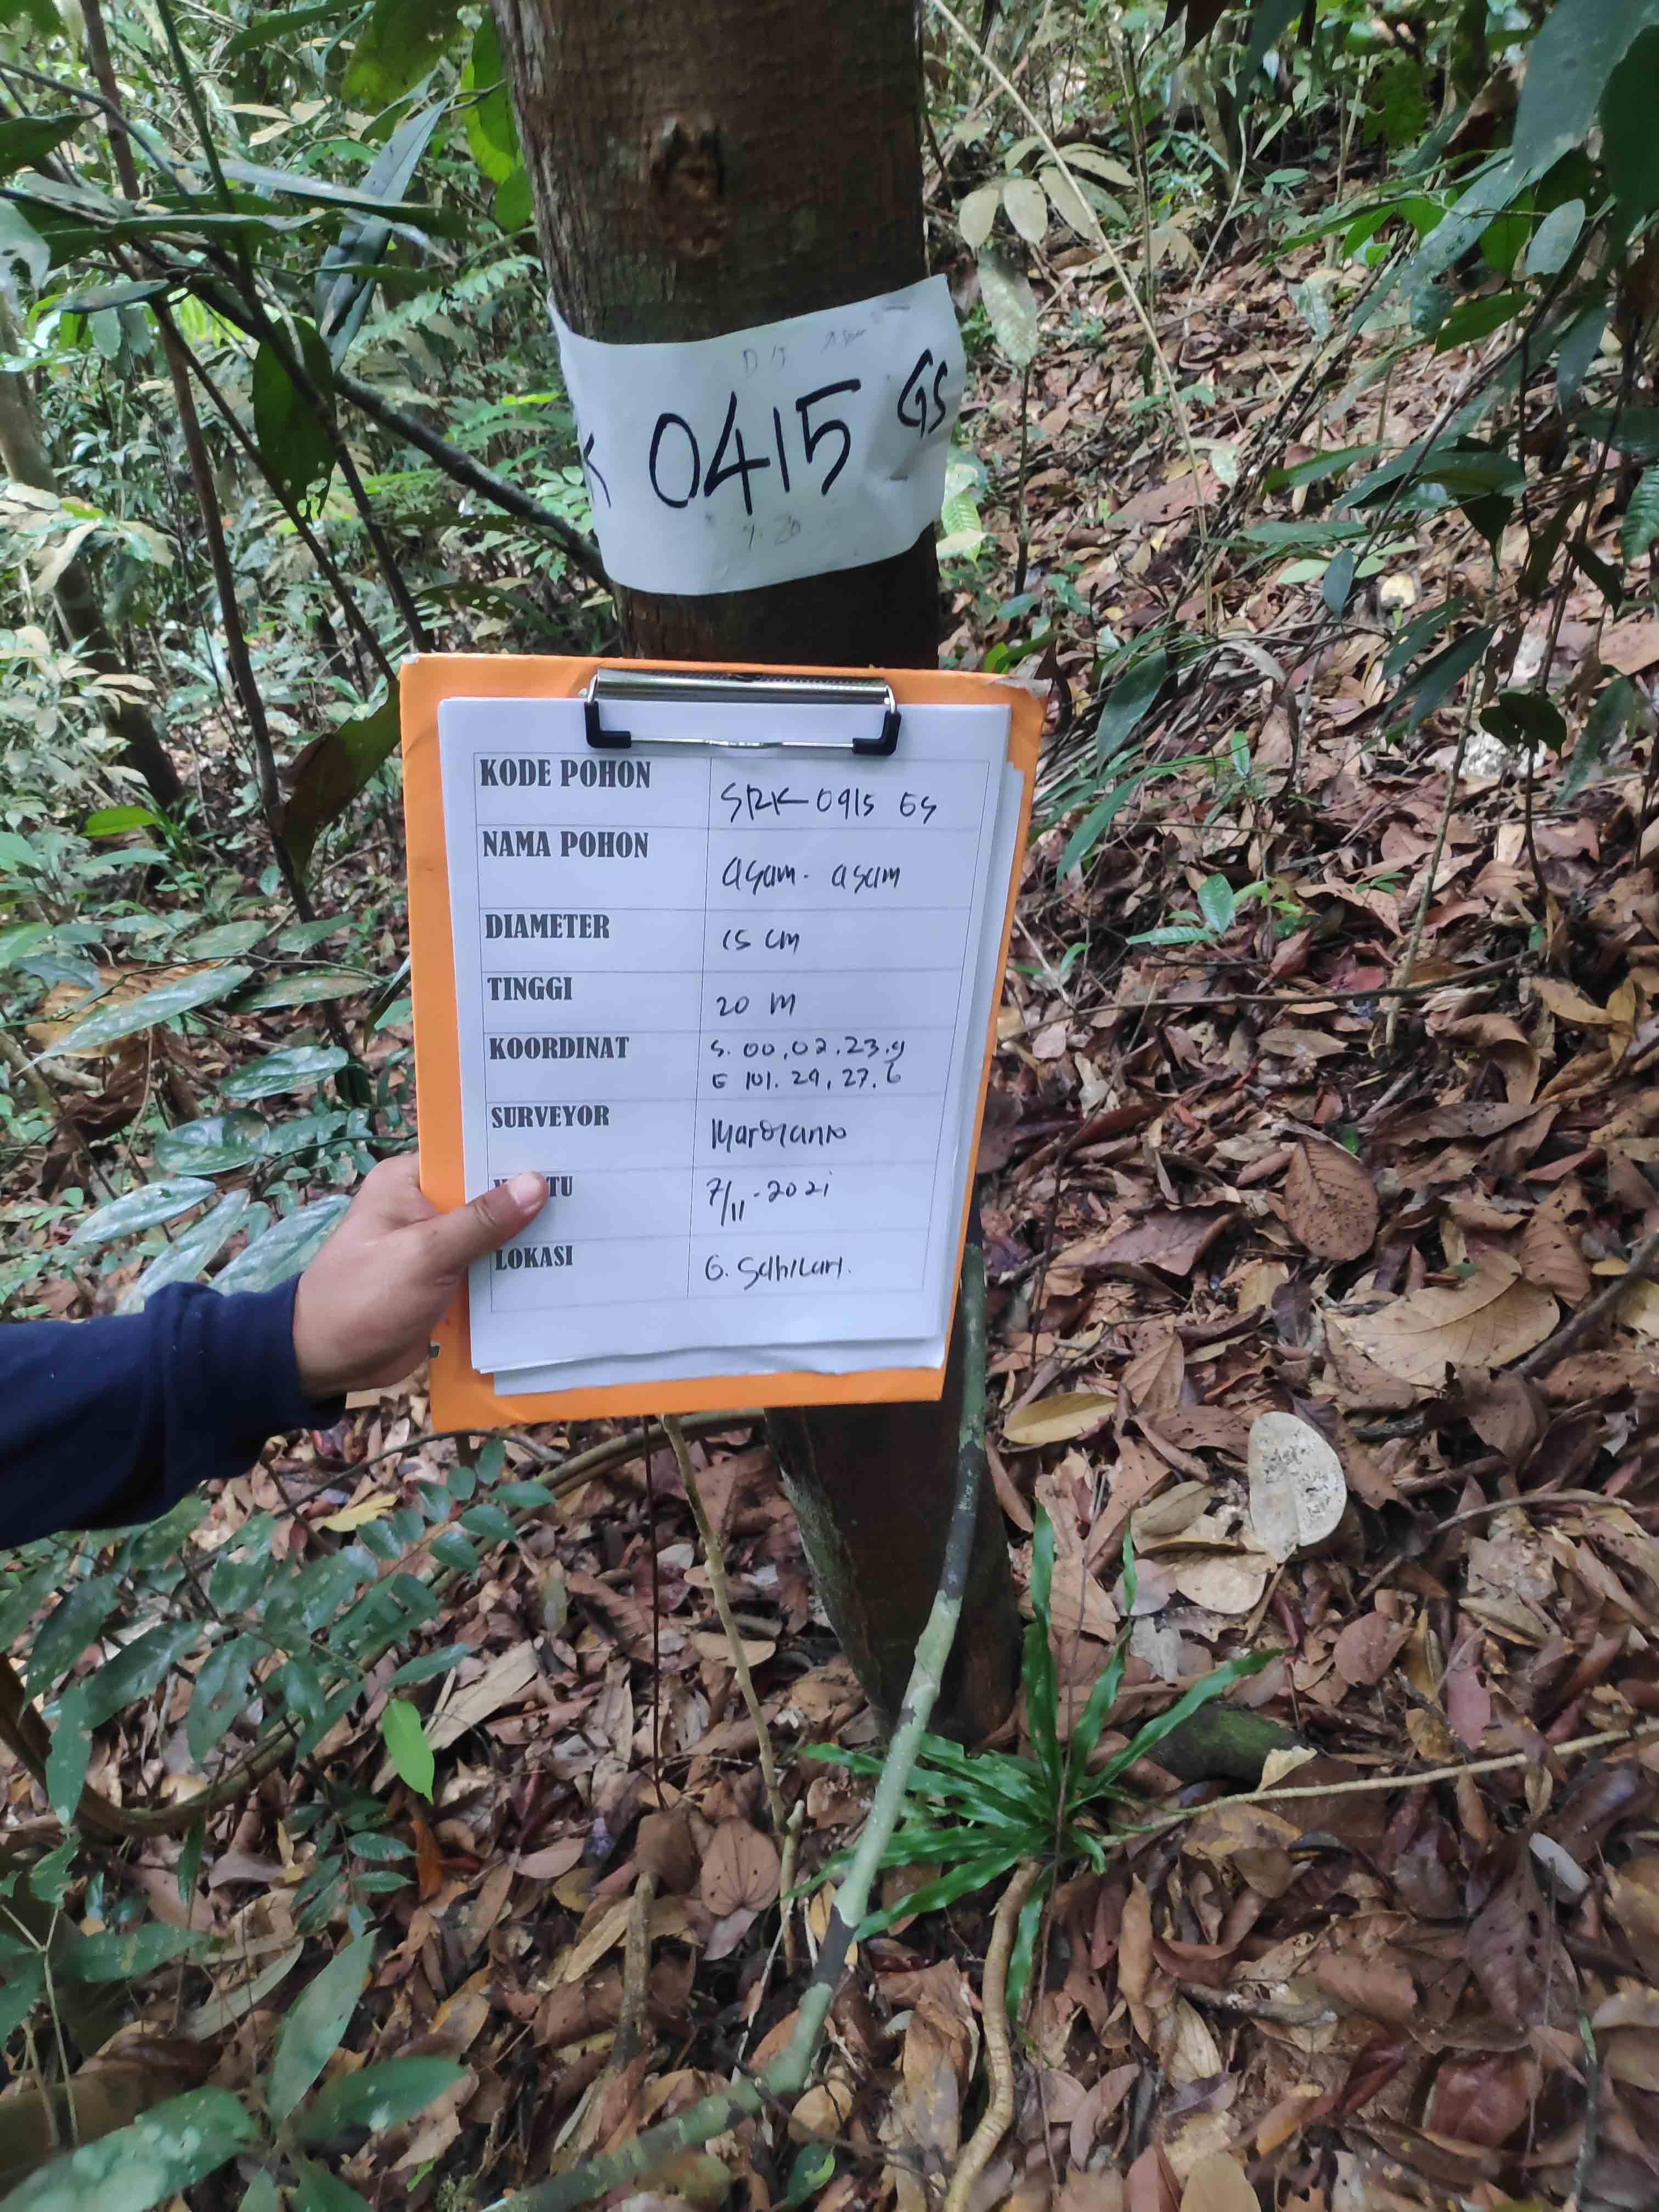 0415 GS
KODE POHON SRK 0415 GS
NAMA POHON asam-asam
DIAMETER 15 cm
TINGGI 20 M
KOORDINAT S. 00.02.23.9
E 101.29.27.6
SURVEYOR
7/11-2021
LOKASI G. Sahilan.